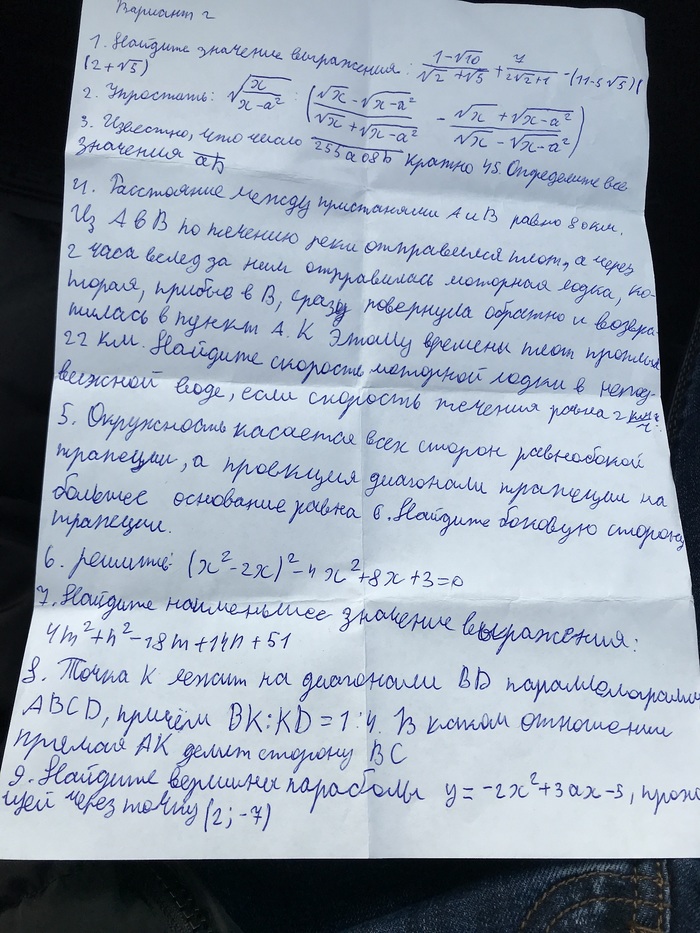 Вариант 2
1. Найдите значение выражения: (1-√10)/(√2+√5) + 7/(2√2+1) - (11-5√5)(
(2+√5)
2. Упростить: √(x/(x-a²)) : ((√x-√(x-a²))/(√x+√(x-a²)) - (√x+√(x-a²))/(√x-√(x-a²)))
3. Известно, что число 255a08b кратно 45. Определите все
значения ab
4. Расстояние между пристанями А и В равно 80 км.
Из А в В по течению реки отправился плот, а через
2 часа вслед за ним отправилась моторная лодка, ко-
торая, прибыв в В, сразу повернула обратно и возвра-
тилась в пункт А. К этому времени плот проплыл
22 км. Найдите скорость моторной лодки в непод-
вижной воде, если скорость течения равна 2 км/ч.
5. Окружность касается всех сторон равнобокой
трапеции, а проекция диагонали трапеции на
большее основание равна 6. Найдите боковую сторону
трапеции.
6. решите: (x²-2x)²-4x²+8x+3=0
7. Найдите наименьшее значение выражения:
4m²+n²-28m+14n+51
8. Точка К лежит на диагонали BD параллелограмма
ABCD, причём BK:KD=1:4. В каком отношении
прямая AK делит сторону BC
9. Найдите вершины параболы y=-2x²+3ax-5, прохо
щей через точку (2;-7)